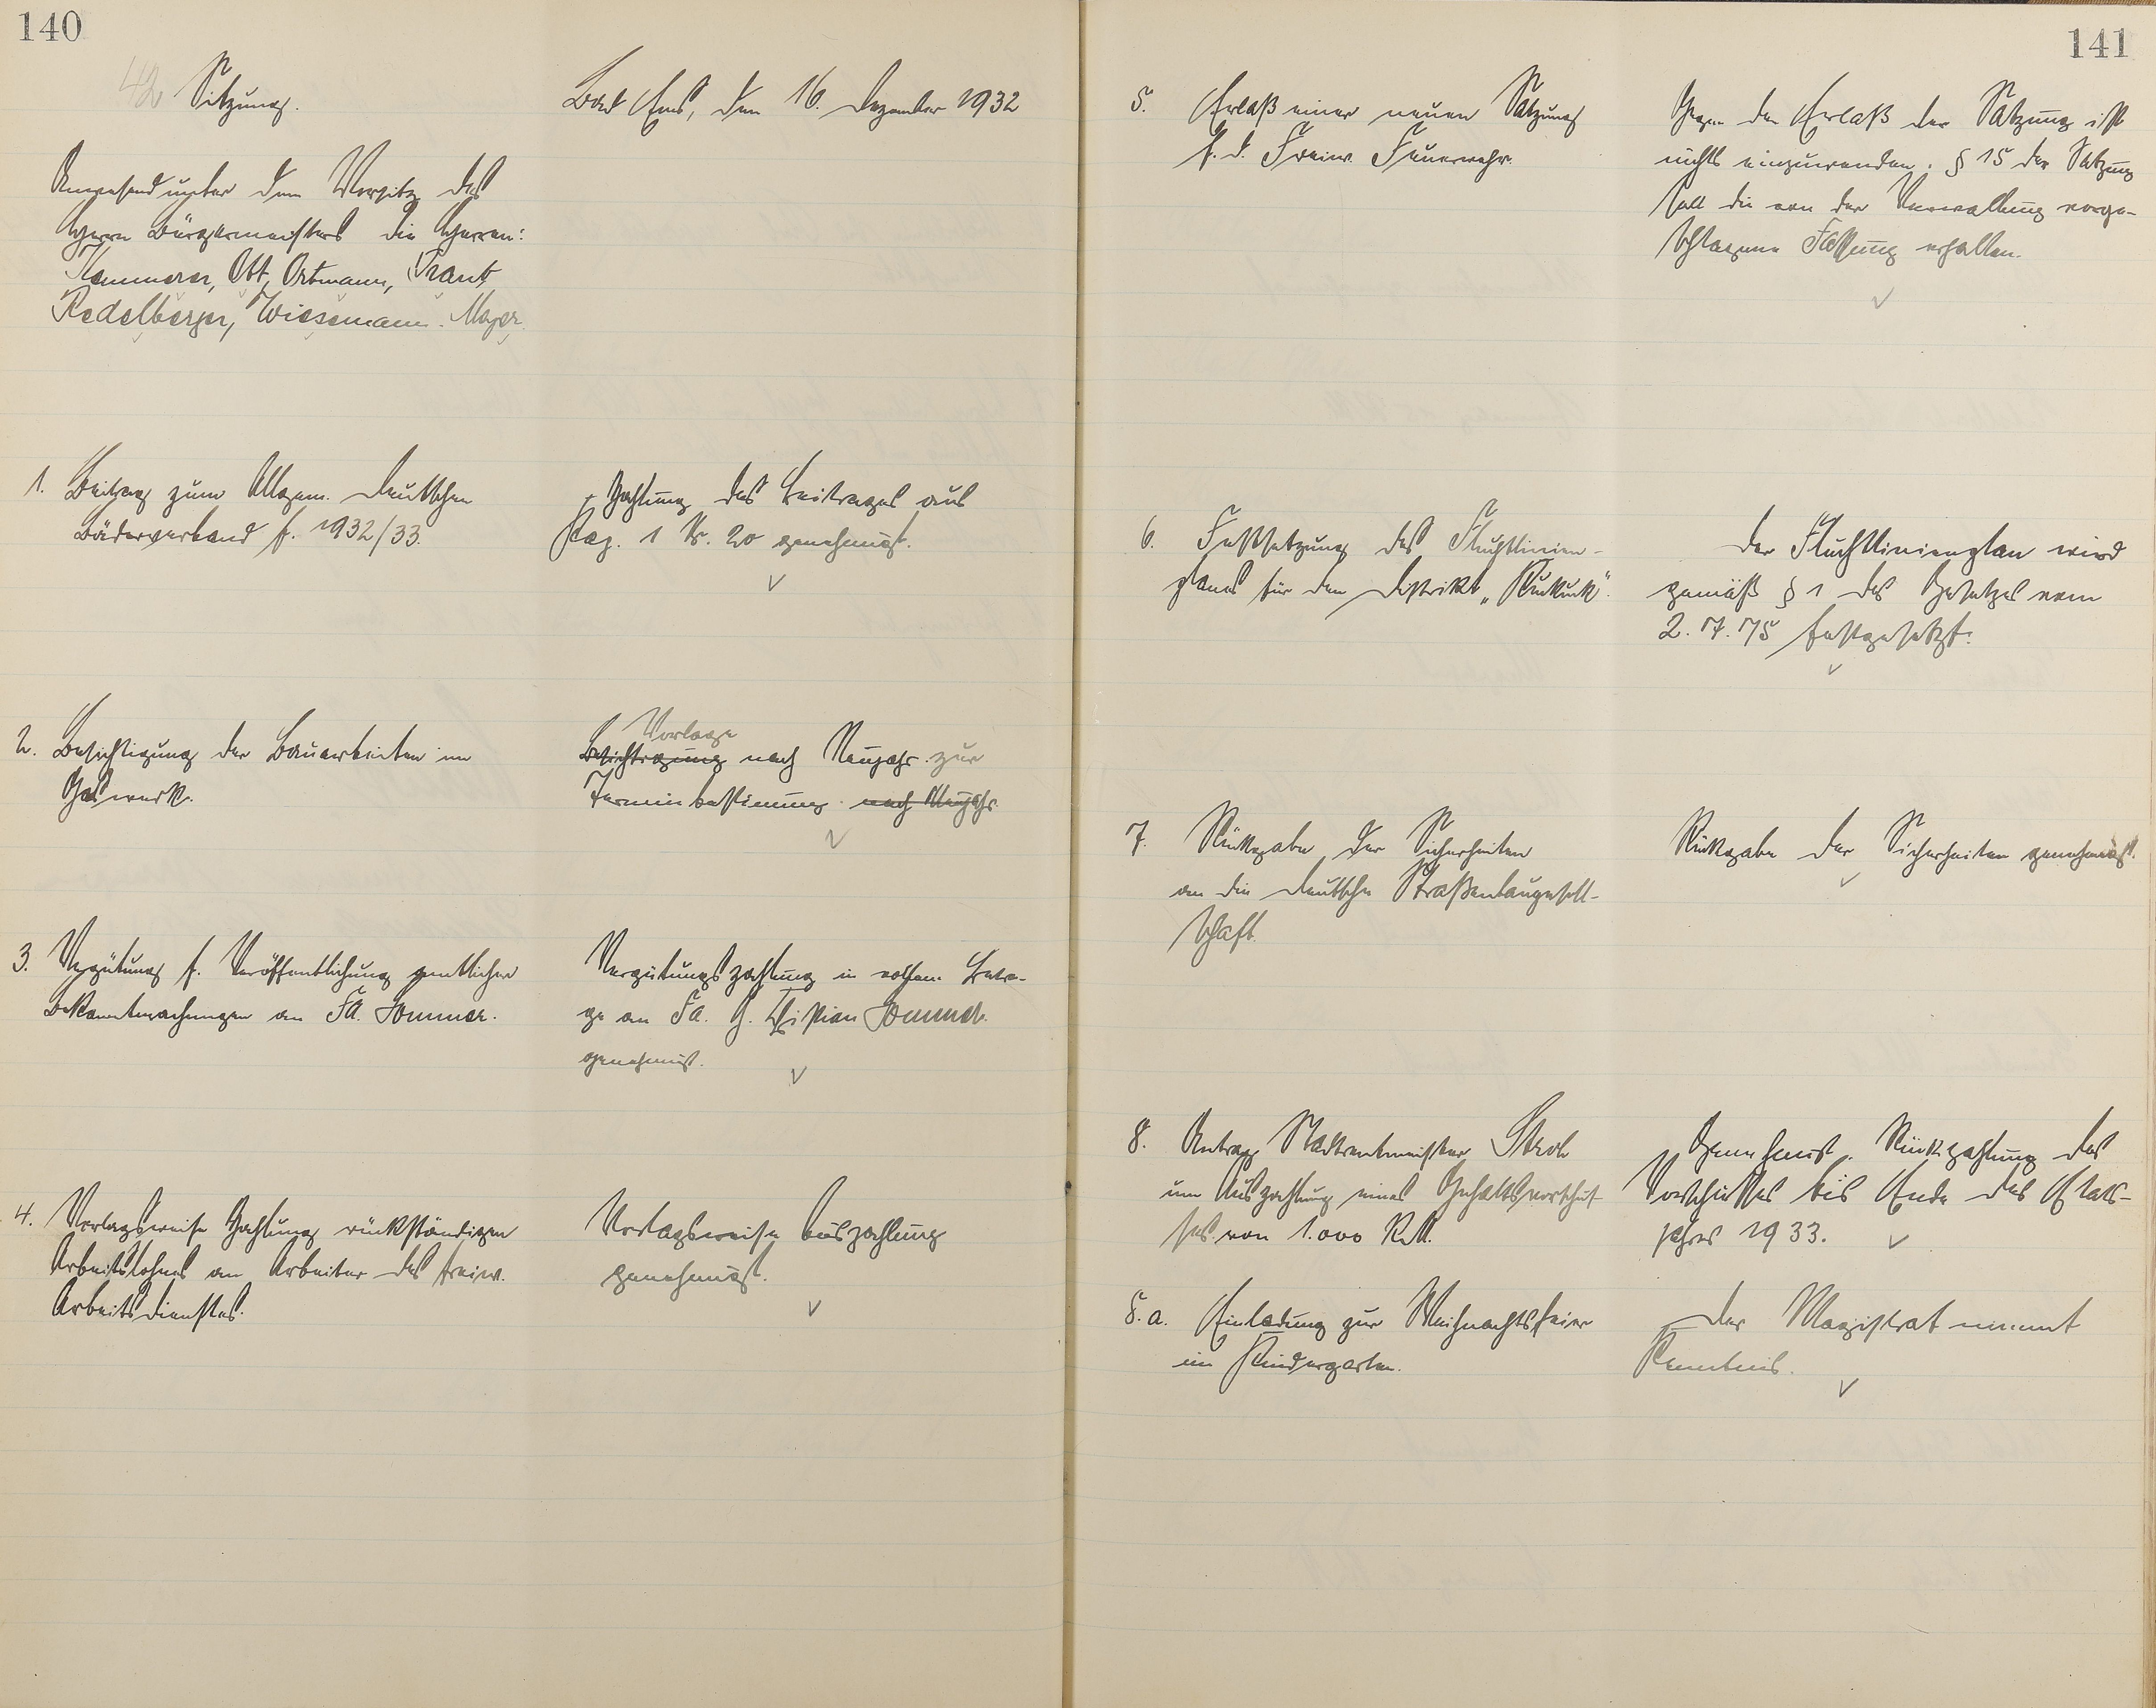 140
42 Sitzung.
Bad Ems, den 16. Dezember 1932
Anwesend unter dem Vorsitz des
Herrn Bürgermeisters die Herren:
Kemmerer, Ott, Ortmann, Traut,
Redelberger, Wiesemann. Mayer.
1. Beitrag zum Allgem. Deutschen
Bäderverband f. 1932/33.
Zahlung des Beitrages aus
Kap. 1 Nr. 20 genehmigt.
2. Besichtigung der Bauarbeiten im
Gaswerk.
Vorlage
Besichtigung nach Neujahr zur
Terminbestimmung nach Neujahr
3. Vergütung f. Veröffentlichung amtlicher
Bekanntmachungen an Fa. Sommer.
Vergütungszahlung in voller Betra-
ge an Fa. H. Christian Sommer
genehmigt.
4. Vorlagsweise Zahlung rückständigen
Arbeitslohnes an Arbeiter des freiw.
Arbeitsdienstes.
Vorlagsweise Auszahlung
genehmigt.
141
5. Erlaß einer neuen Satzung
f. d. Freiw. Feuerwehr.
Gegen den Erlaß der Satzung ist
nichts einzuwenden. § 15 der Satzung
soll die von der Verwaltung vorge-
schlagene Fassung erhalten.
6. Festsetzung des Fluchtlinien-
planes für den Distrikt „Kuckuck".
Der Fluchtlinienplan wird
gemäß § 1 des Gesetzes vom
2. 7. 75 festgesetzt.
7. Rückgabe der Sicherheiten
an die Deutsche Straßenbaugesell-
schaft.
Rückgabe der Sicherheiten genehmigt.
8. Antrag Stadtrentmeister Stroh
um Auszahlung eines Gehaltsvorschus-
ses von 1.000 RM.
Genehmigt. Rückzahlung des
Vorschusses bis Ende des Etats-
jahres 1933.
8.a. Einladung zur Weihnachtsfeier
im Kindergarten.
Der Magistrat nimmt
Kenntnis.